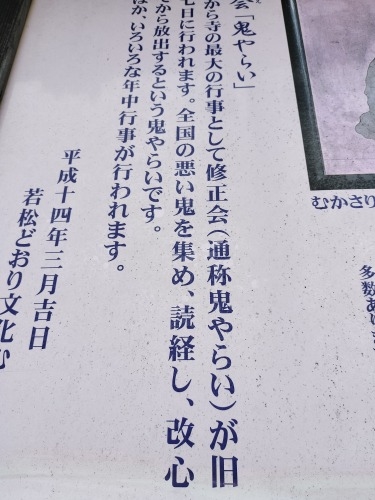 会「鬼やらい」
から寺の最大の行事として修正会(通称鬼やらい)が旧
七日に行われます。全国の悪い鬼を集め、読経し、改心
から放出するという鬼やらいです。
ほか、いろいろな年中行事が行われます。
平成十四年三月吉日
若松どおり文化む
むかさり
多数あり